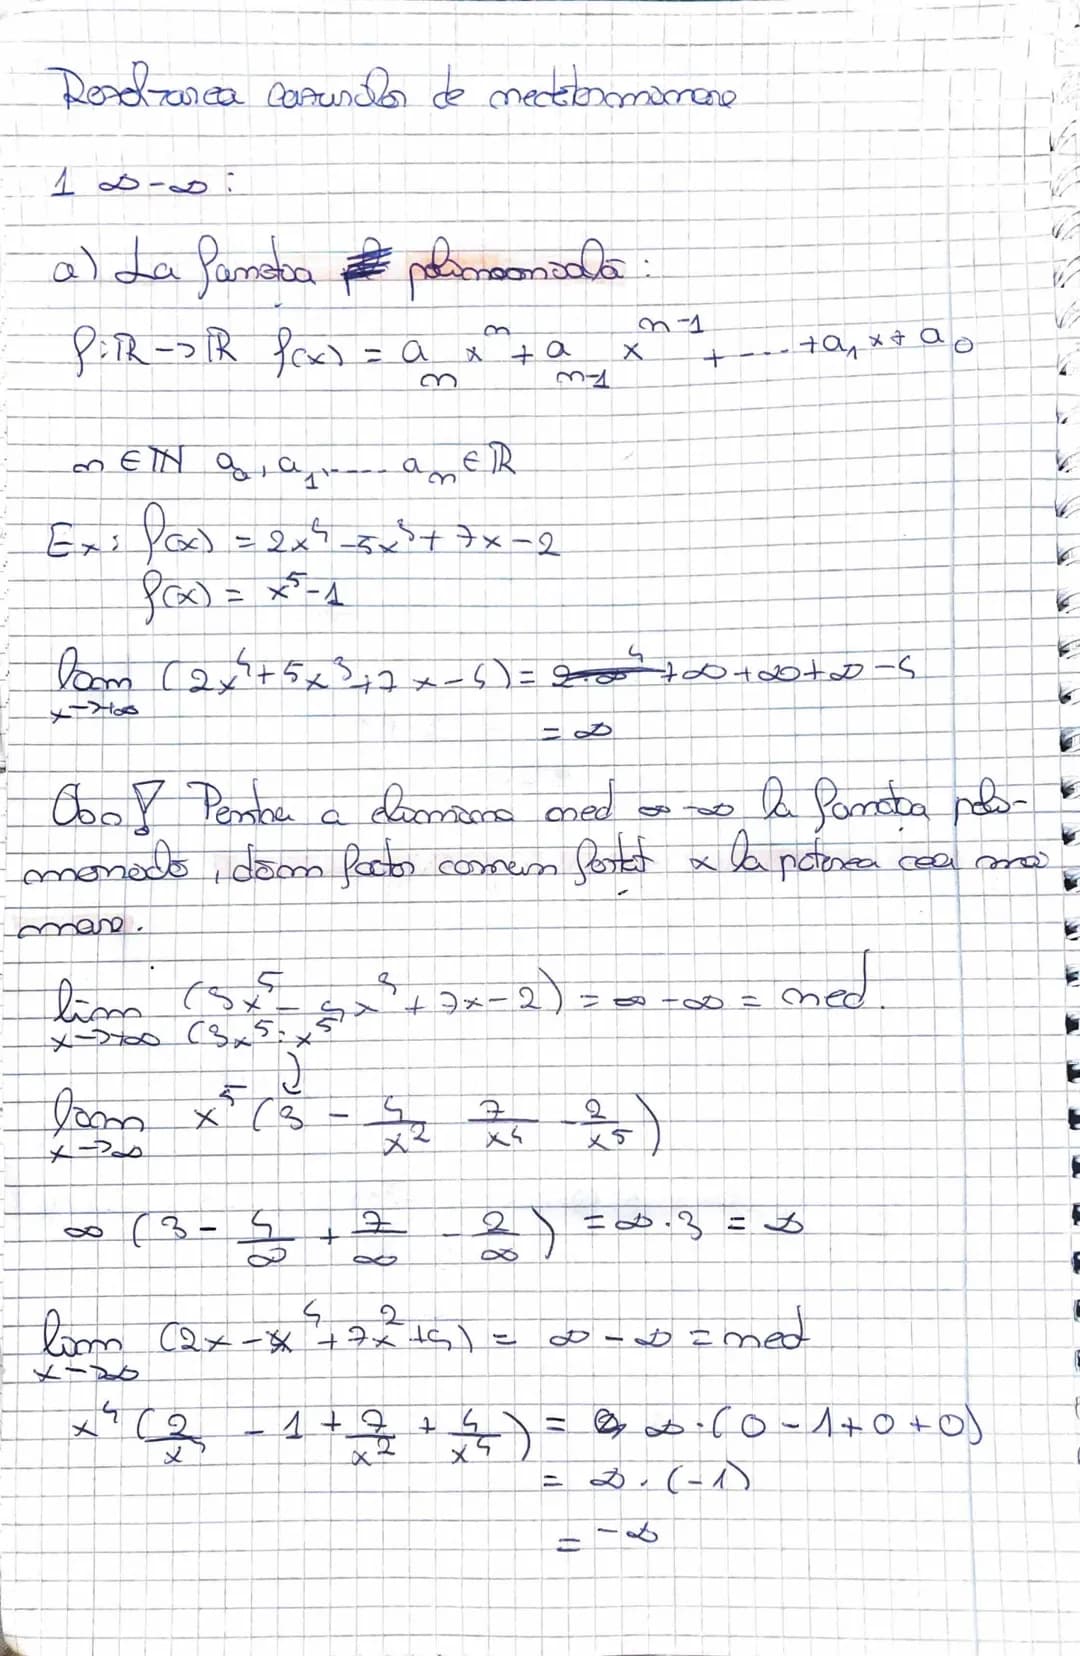 Rezolvarea cazurilor de nedeterminare
1 ∞-∞:
a) La funcția polinomială:
f:ℝ->ℝ f(x) = a_n x^n + a_{n-1} x^{n-1} + .... + a_1 x + a_0
n ∈ ℕ a_0, a_1, ..... a_n ∈ ℝ
Ex: f(x) = 2x^4 - 5x^3 + 7x - 2
f(x) = x^5 - 1
lim (2x^4 + 5x^3 + 7x - 4) = +∞ + ∞ + ∞ - 4
x->+∞
= ∞
Obs! Pentru a elimina ned ∞-∞ la funcția poli-
nomială, dăm factor comun forțat x la puterea cea mai
mare.
lim (3x^5 - 4x^3 + 7x - 2) = ∞ - ∞ = ned.
x->+∞ (3x^5 : x^5)
lim x^5 (3 - 4/x^2 7/x^4 - 2/x^5)
x->∞
∞ (3 - 4/∞ + 7/∞ - 2/∞) = ∞ · 3 = ∞
lim (2x - x^4 + 7x^2 + 4) = ∞ - ∞ = ned
x->∞
x^4 (2/x^3 - 1 + 7/x^2 + 4/x^4) = ∞ · (0 - 1 + 0 + 0)
= ∞ · (-1)
= -∞